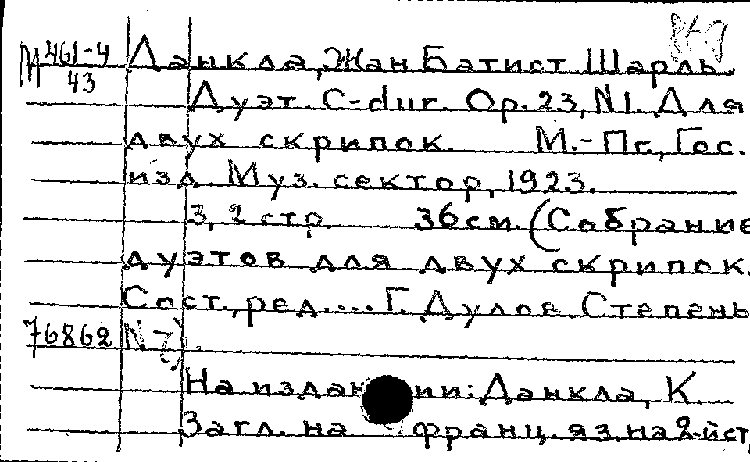 М 461-4 Данкла, Жан Батист Шарль
43 Дуэт. C-dur. Op. 23, N1. Для
двух скрипок. М.-Пг., Гос.
изд. Муз. сектор, 1923.
3, 2 стр. 36 см. (Собрание
дуэтов для двух скрипок.
Сост., ред.... Г. Дулов. Степень
76862 N
На издан ии: Данкла, К
Загл. на франц. яз. на 2-й ст.